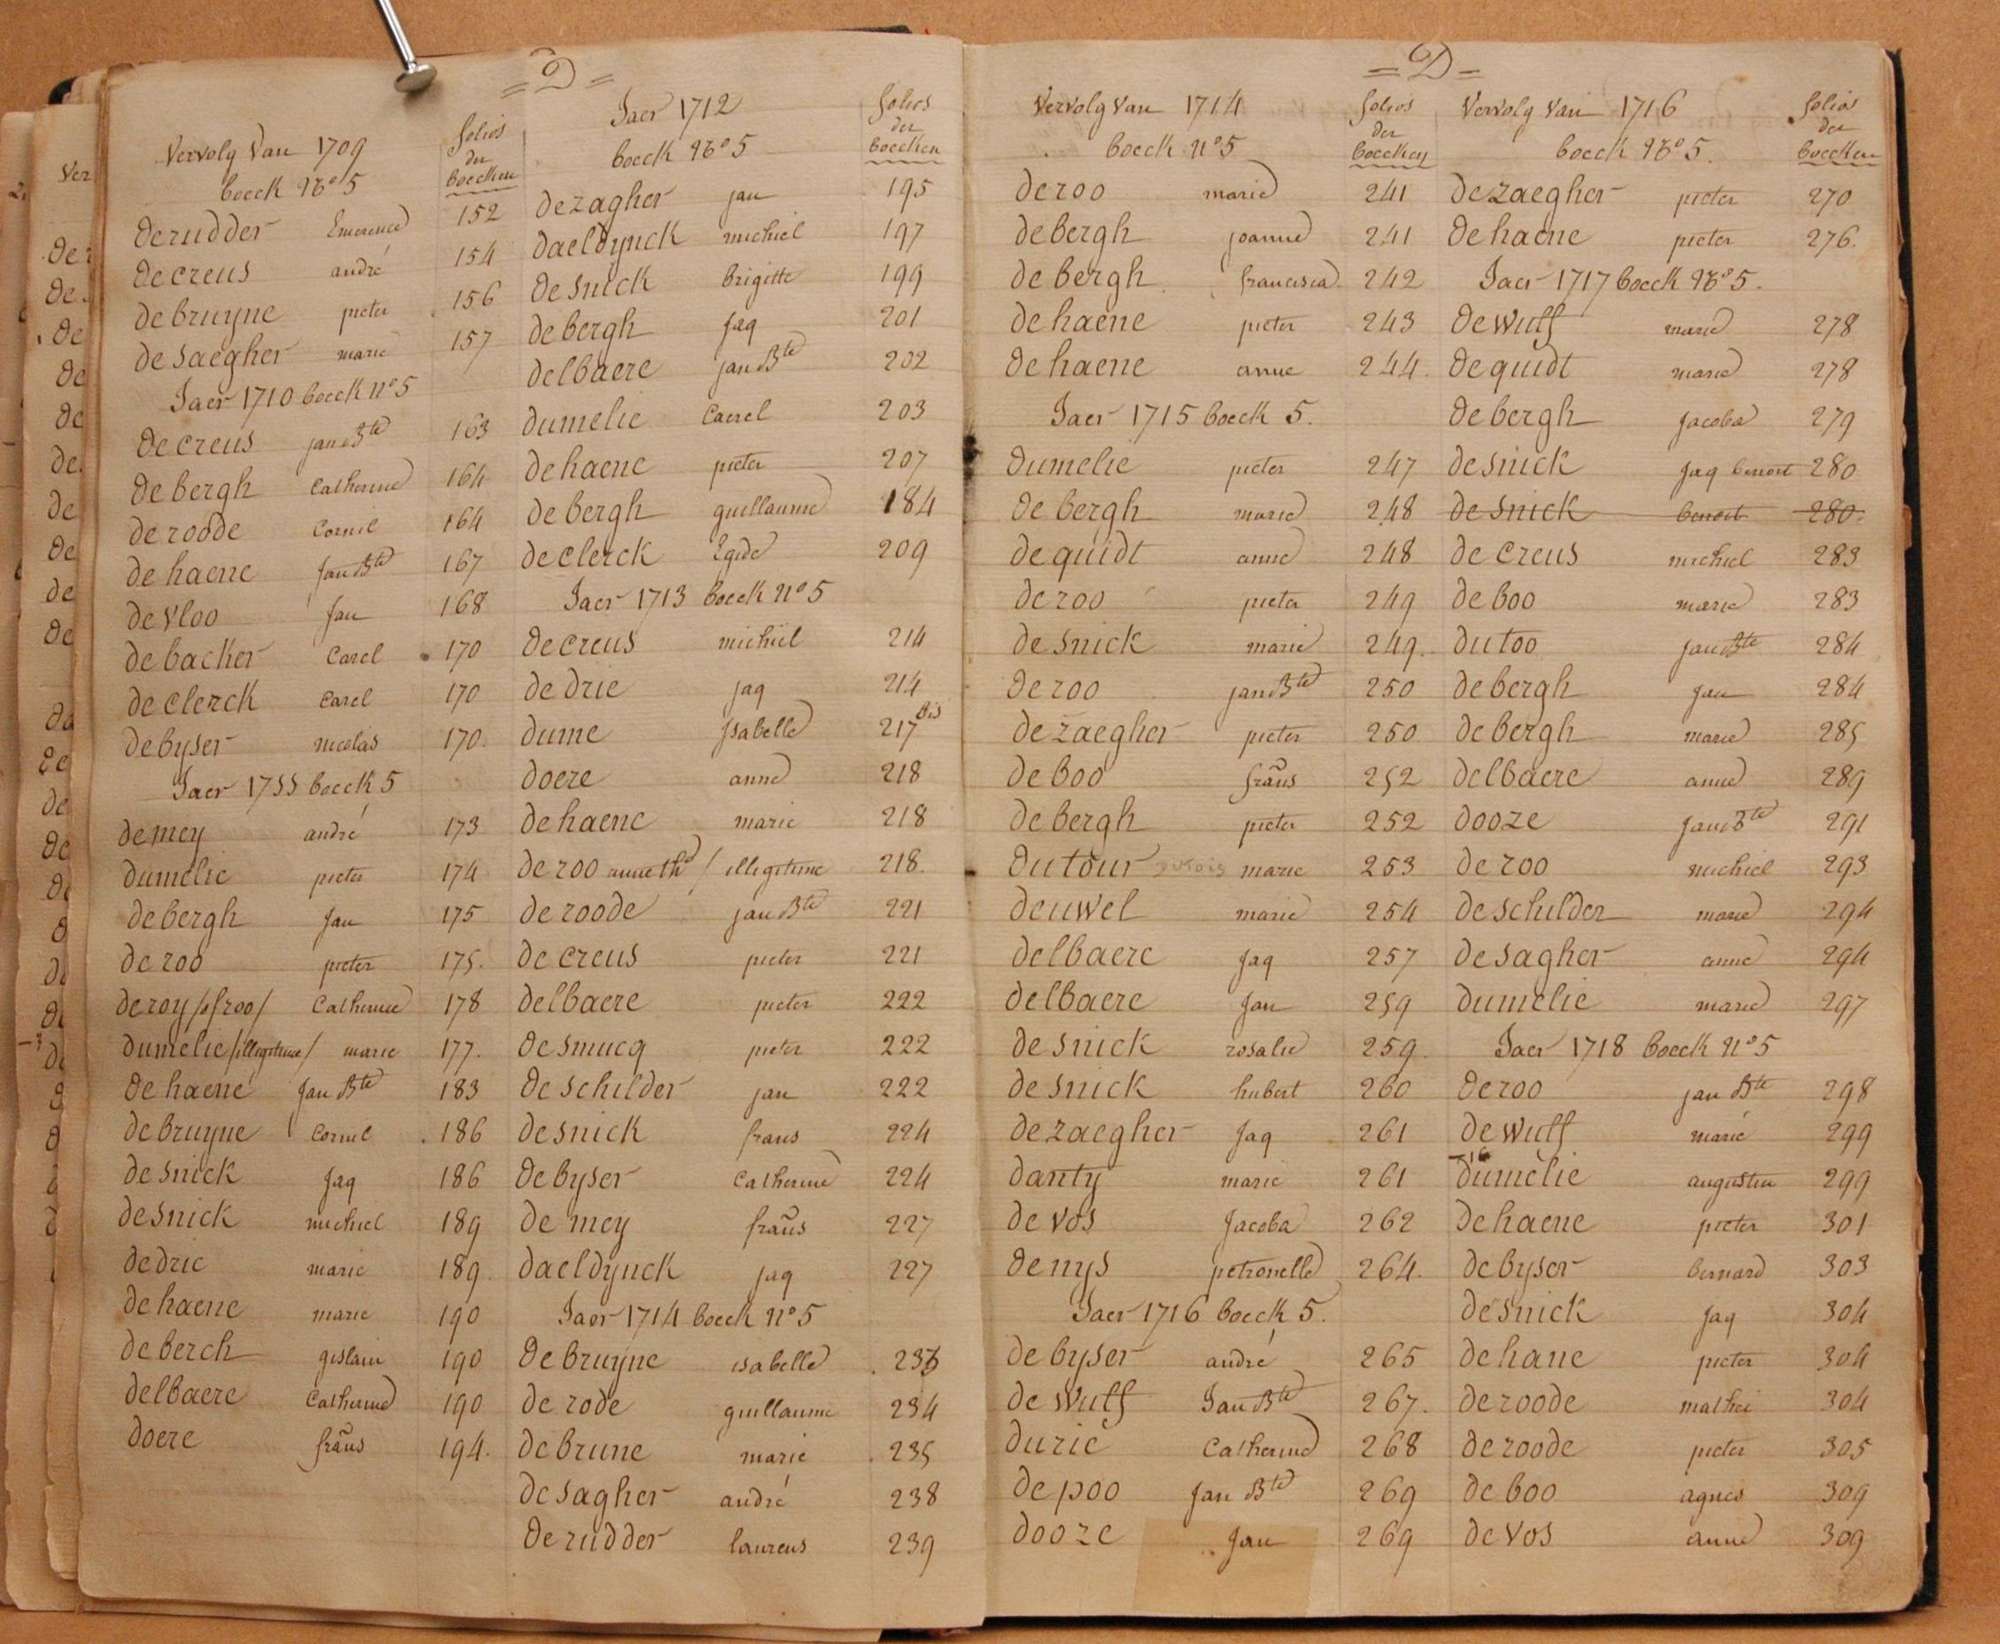 = D =
Vervolg Van 1709
boeck No 5
folios
der
boecken
derudder Emerence 152
decreus andré 154
debruyne pieter 156
desaegher marie 157
Jaer 1710 boeck no 5
decreus jan Bte 163
debergh Catherine 164
deroode Cornil 164
dehaene Jan Bte 167
devloo Jan 168
debacker Carel 170
declerck Carel 170
debyser nicolas 170.
Jaer 1711 boeck 5
demey andré 173
dumelie pieter 174
debergh Jan 175
deroo pieter 175.
deroy /of roo/ Catherine 178
dumelie /illegitime/ marie 177.
dehaene Jan Bte 183
debruyne Cornil 186
desnick Jaq 186
desnick michiel 189
dedrie marie 189.
dehaene marie 190
deberch gislain 190
delbaere Catherine 190
doere frans 194.
Jaer 1712
boeck No 5
folios
der
boecken
dezagher jan 195
daeldynck michiel 197
desnick brigitte 199
debergh Jaq 201
delbaere jan Bte 202
dumelie Caerel 203
dehaene pieter 207
debergh guillaume 184
declerck Egide 209
Jaer 1713 boeck no 5
decreus michiel 214
dedrie Jaq 214
dume Isabelle 217 bis
doere anne 218
dehaene marie 218
deroo anne th / illegitime 218.
deroode jan Bte 221
decreus pieter 221
delbaere pieter 222
desmucq pieter 222
deschilder jan 222
desnick frans 224
debyser Catherine 224
demey frans 227
daeldynck Jaq 227
Jaer 1714 boeck no 5
debruyne isabelle
derode guillaume 234
debrune marie 235
desagher andré 238
derudder laurens 239
= D =
Vervolg Van 1714
boeck no 5
folios
der
boecken
deroo marie 241
debergh joanne 241
debergh francisca 242
dehaene pieter 243
dehaene anne 244.
Jaer 1715 boeck 5.
dumelie pieter 247
debergh marie 248
dequidt anne 248
deroo pieter 249
desnick marie 249.
deroo jan Bte 250
dezaegher pieter 250
deboo frans 252
debergh pieter 252
dutour dutois marie 253
deuwel marie 254
delbaere Jaq 257
delbaere Jan 259
desnick rosalie 259.
desnick hubert 260
dezaegher Jaq 261
danty marie 261
devos Jacoba 262
denys petronelle 264.
Jaer 1716 boeck 5.
debyser andré 265
dewulf Jan Bte 267.
durie Catherine 268
depoo Jan Bte 269
dooze Jan 269
Vervolg Van 1716
boeck No 5.
folios
der
boecken
dezaegher pieter 270
dehaene pieter 276.
Jaer 1717 boeck No 5.
dewulf marie 278
dequidt marie 278
debergh Jacoba 279
desnick Jaq benoit 280
desnick benoit 280.
decreus michiel 283
deboo marie 283
dutoo Jan Bte 284
debergh Jan 284
debergh marie 285
delbaere anne 289
dooze Jan Bte 291
deroo michiel 293
deschilder marie 294
desagher anne 294
dumelie marie 297
Jaer 1718 boeck no 5
deroo jan Bte 298
dewulf marie 299
dumelie augustin 299
dehaene pieter 301
debyser bernard 303
desnick Jaq 304
dehane pieter 304
deroode mathei 304
deroode pieter 305
deboo agnes 309
devos anne 309